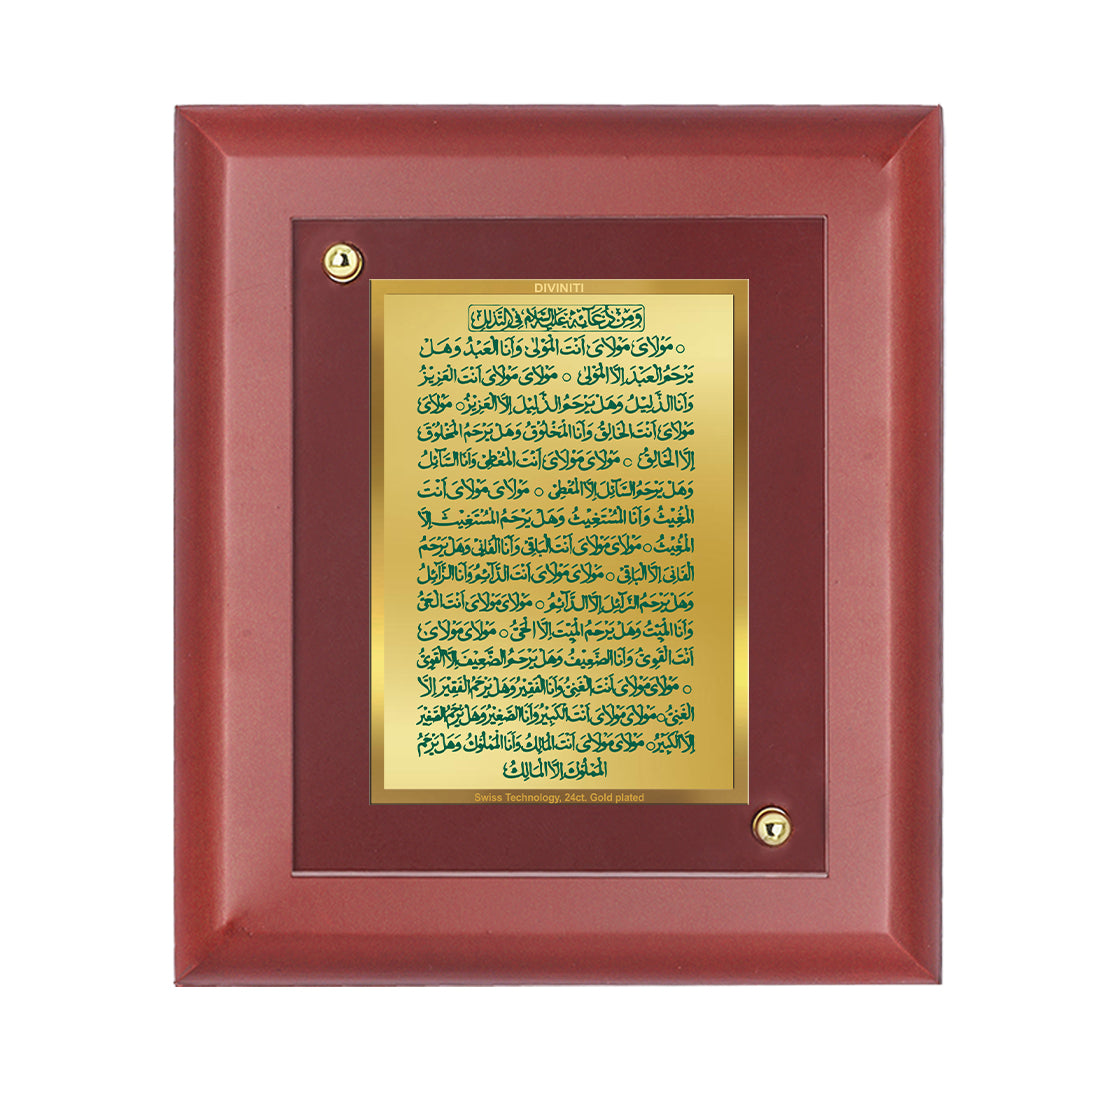 DIVINITI
وَمِنْ دُعَائِهِ عَلَيْهِ السَّلَامُ فِي التَّذَلُّلِ
○ مَوْلَايَ مَوْلَايَ اَنْتَ الْمَوْلٰى وَاَنَا الْعَبْدُ وَهَلْ
يَرْحَمُ الْعَبْدَ اِلَّا الْمَوْلٰى ○ مَوْلَايَ مَوْلَايَ اَنْتَ الْعَزِيْزُ
وَاَنَا الذَّلِيْلُ وَهَلْ يَرْحَمُ الذَّلِيْلَ اِلَّا الْعَزِيْزُ ○ مَوْلَايَ
مَوْلَايَ اَنْتَ الْخَالِقُ وَاَنَا الْمَخْلُوْقُ وَهَلْ يَرْحَمُ الْمَخْلُوْقَ
اِلَّا الْخَالِقُ ○ مَوْلَايَ مَوْلَايَ اَنْتَ الْمُعْطِيْ وَاَنَا السَّآئِلُ
وَهَلْ يَرْحَمُ السَّآئِلَ اِلَّا الْمُعْطِيْ ○ مَوْلَايَ مَوْلَايَ اَنْتَ
الْمُغِيْثُ وَاَنَا الْمُسْتَغِيْثُ وَهَلْ يَرْحَمُ الْمُسْتَغِيْثَ اِلَّا
الْمُغِيْثُ ○ مَوْلَايَ مَوْلَايَ اَنْتَ الْبَاقِيْ وَاَنَا الْفَانِيْ وَهَلْ يَرْحَمُ
الْفَانِيَ اِلَّا الْبَاقِيْ ○ مَوْلَايَ مَوْلَايَ اَنْتَ الدَّآئِمُ وَاَنَا الزَّآئِلُ
وَهَلْ يَرْحَمُ الزَّآئِلَ اِلَّا الدَّآئِمُ ○ مَوْلَايَ مَوْلَايَ اَنْتَ الْحَيُّ
وَاَنَا الْمَيِّتُ وَهَلْ يَرْحَمُ الْمَيِّتَ اِلَّا الْحَيُّ ○ مَوْلَايَ مَوْلَايَ
اَنْتَ الْقَوِيُّ وَاَنَا الضَّعِيْفُ وَهَلْ يَرْحَمُ الضَّعِيْفَ اِلَّا الْقَوِيُّ
○ مَوْلَايَ مَوْلَايَ اَنْتَ الْغَنِيُّ وَاَنَا الْفَقِيْرُ وَهَلْ يَرْحَمُ الْفَقِيْرَ اِلَّا
الْغَنِيُّ ○ مَوْلَايَ مَوْلَايَ اَنْتَ الْكَبِيْرُ وَاَنَا الصَّغِيْرُ وَهَلْ يَرْحَمُ الصَّغِيْرَ
اِلَّا الْكَبِيْرُ ○ مَوْلَايَ مَوْلَايَ اَنْتَ الْمَالِكُ وَاَنَا الْمَمْلُوْكُ وَهَلْ يَرْحَمُ
الْمَمْلُوْكَ اِلَّا الْمَالِكُ
Swiss Technology, 24ct. Gold plated